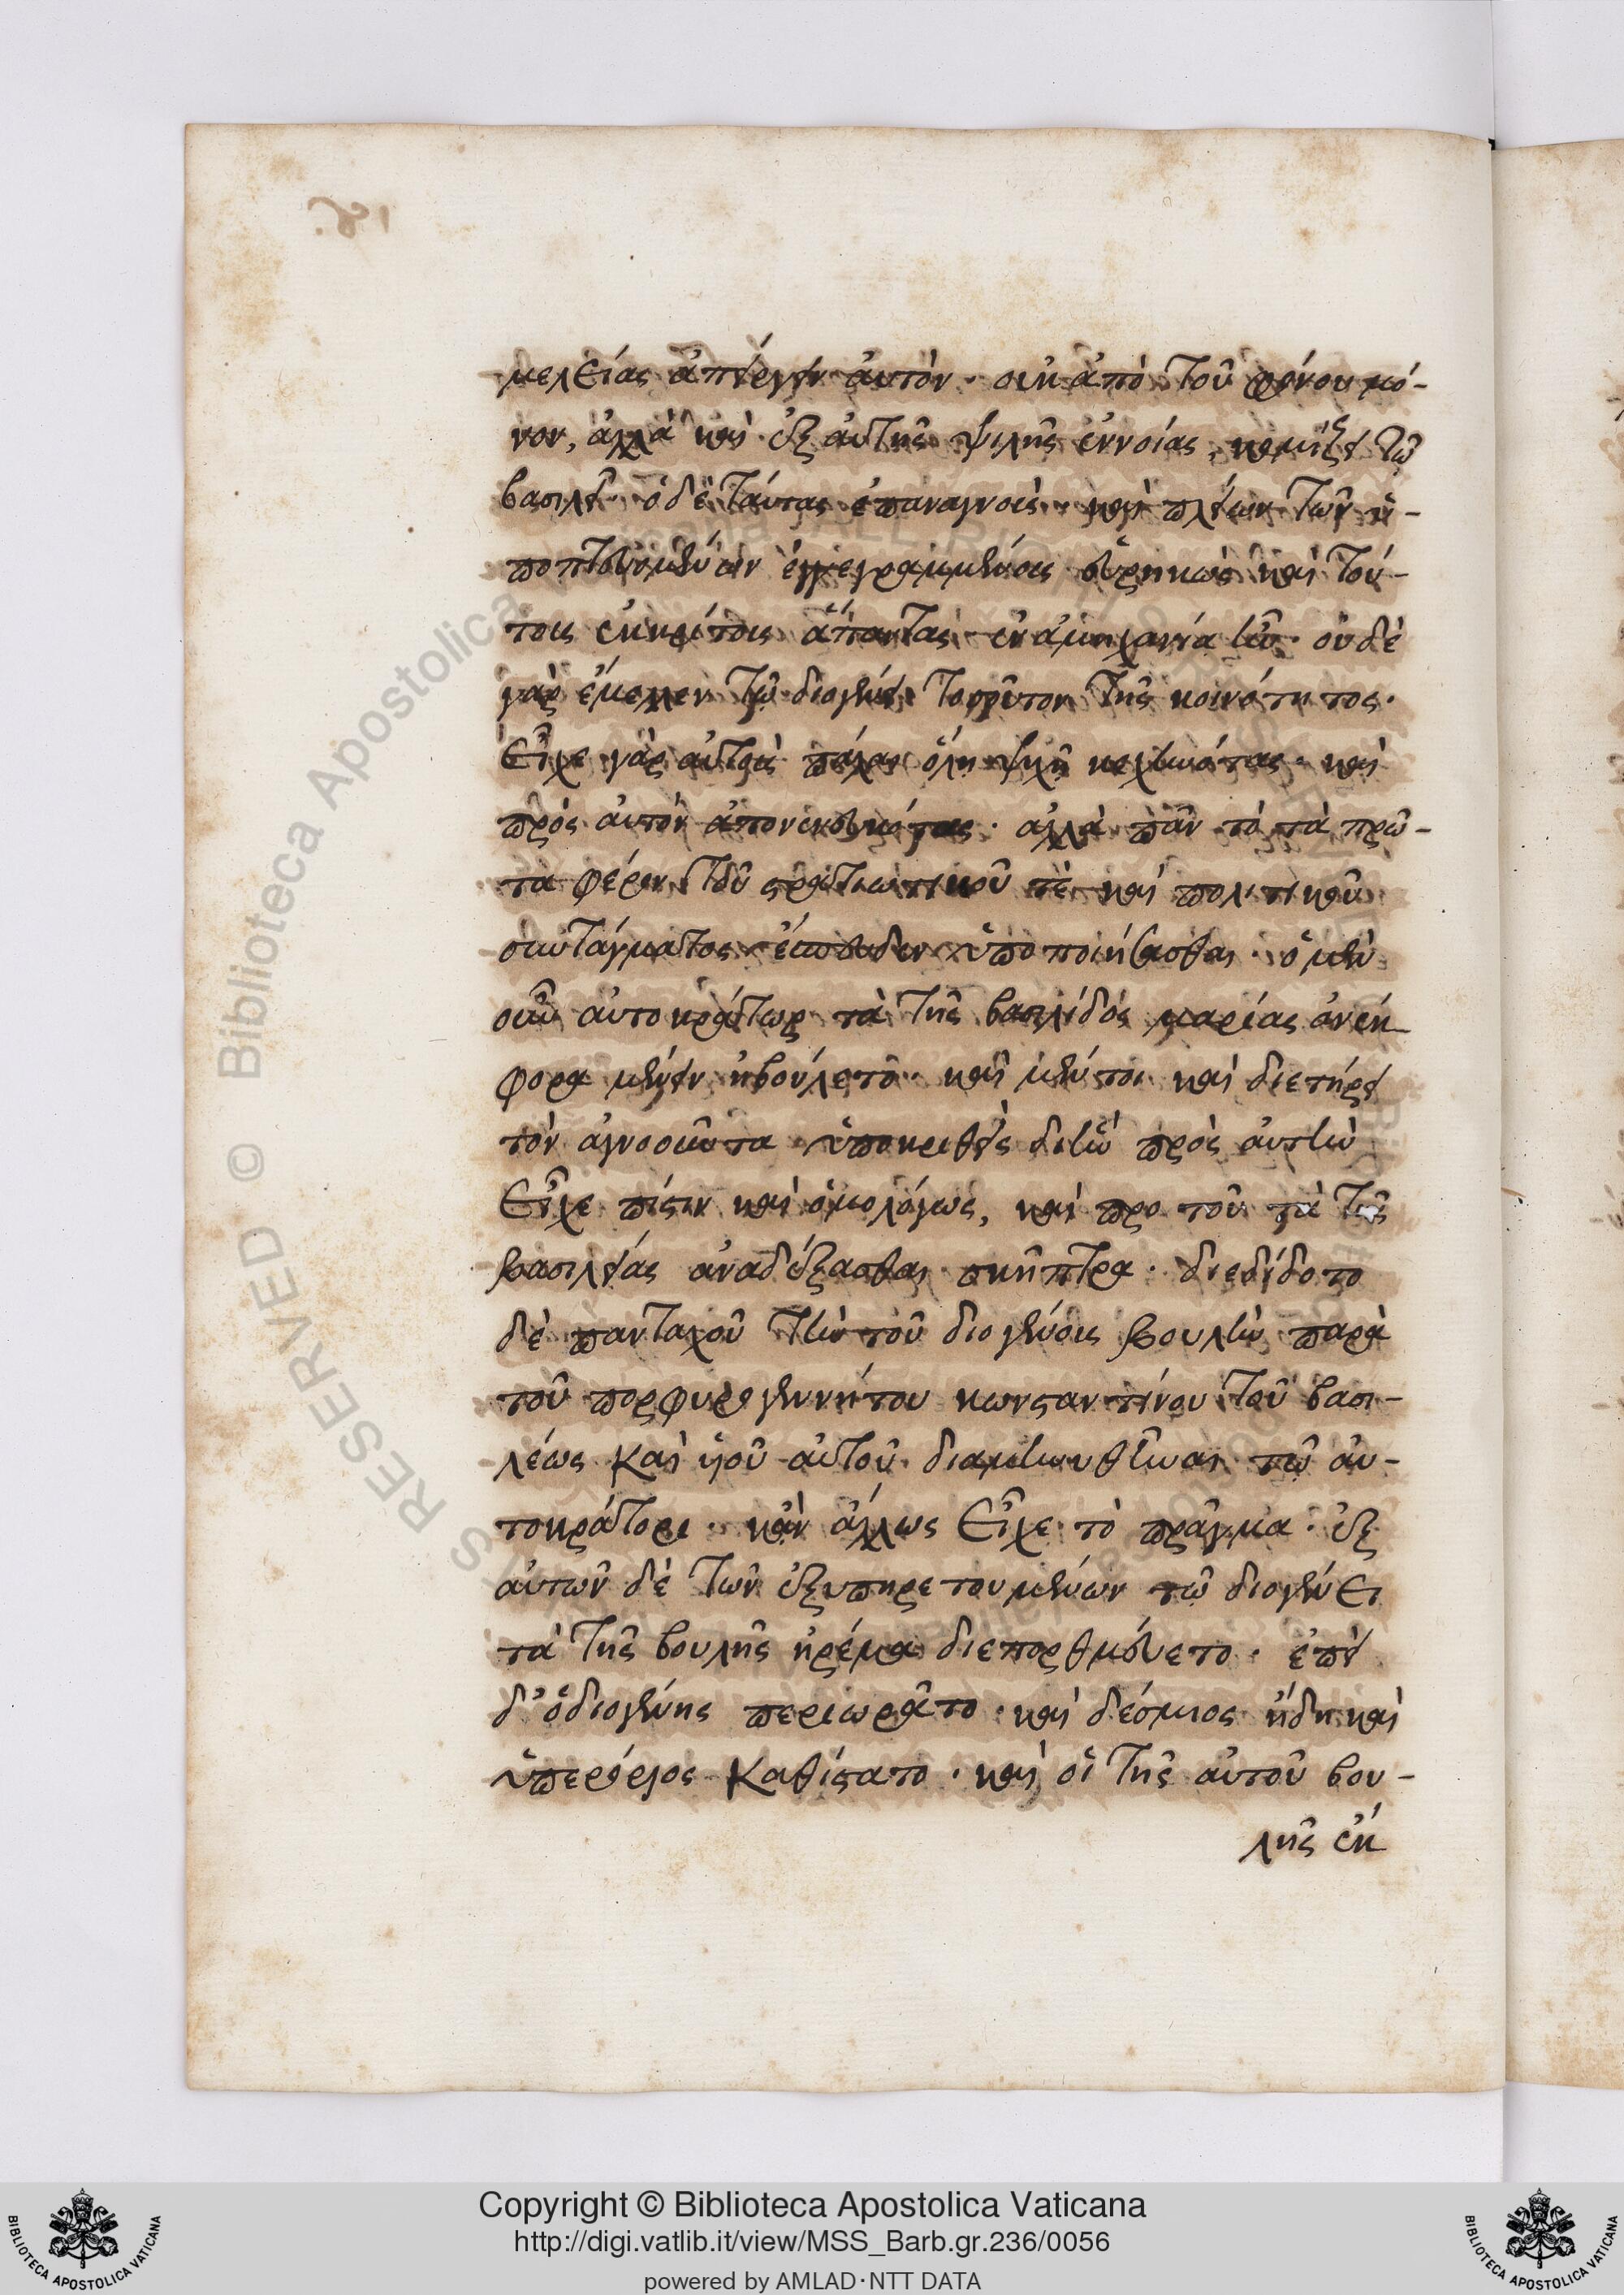 μελείας ἀπείργειν αὐτὸν· οὐκ ἀπὸ τοῦ φόνου μό-
νον, ἀλλὰ καὶ ἐξ αὐτῆς ψιλῆς ἐννοίας, κομίζει τῷ
βασιλεῖ· ὁ δὲ ταύτας ἐπαναγνοὺς· καὶ πλείων τῶν ὑ-
ποπτευομένων ἐγγεγραμμένους εὑρηκὼς καὶ τού-
τους ἐκκρίτους ἅπαντας· ἐν ἀμηχανία ἦν· οὐδὲ
γὰρ ἔμελλεν τῷ διογένει τοσοῦτον τῆς κοινότητος·
Εἶχε γὰρ αὐτοὺς πάλαι ὅλη ψυχῇ κεχηνότας· καὶ
πρὸς αὐτὸν ἀπονενευκότας· ἀλλὰ πᾶν τὸ τὰ πρῶ-
τα φέρειν τοῦ στρατιωτικοῦ τὲ καὶ πολιτικοῦ
συντάγματος ἔσπευδεν ὑποποιήσασθαι· ὁ μὲν
οὖν αὐτοκράτωρ τὰ τῆς βασιλίδος μαρίας ἀνέκ
φορα μένειν ἠβούλετο· καὶ μέντοι καὶ διετήρει
τὸν ἀγνοοῦντα ὑποκριθεὶς δι ἣν πρὸς αὐτὴν
Εἶχε πίστιν καὶ ὁμολόγως, καὶ προ τοῦ τὰ τῆς
βασιλείας ἀναδέξασθαι σκῆπτρα· διεδίδοτο
δὲ πανταχοῦ τὴν τοῦ διογένους βουλὴν παρὰ
τοῦ πορφυρογεννήτου κωνσταντίνου τοῦ βασι-
λέως καὶ υἱοῦ αὐτοῦ διαμηνυθῆναι τῷ αὐ-
τοκράτορι· κἂν ἄλλως Εἶχε τὸ πρᾶγμα· ἐξ
αὐτῶν δὲ τῶν ἐξυπηρετουμένων τῷ διογένει
τὰ τῆς βουλῆς ἠρέμα διεπορθμεύετο· ἐπεὶ
δ' ὁ διογένης περιωρᾶτο· καὶ δέσμιος ἤδη καὶ
ὑπερόριος καθίστατο· καὶ οἱ τῆς αὐτοῦ βου-
λῆς ἐκ
Copyright © Biblioteca Apostolica Vaticana
http://digi.vatlib.it/view/MSS_Barb.gr.236/0056
powered by AMLAD·NTT DATA